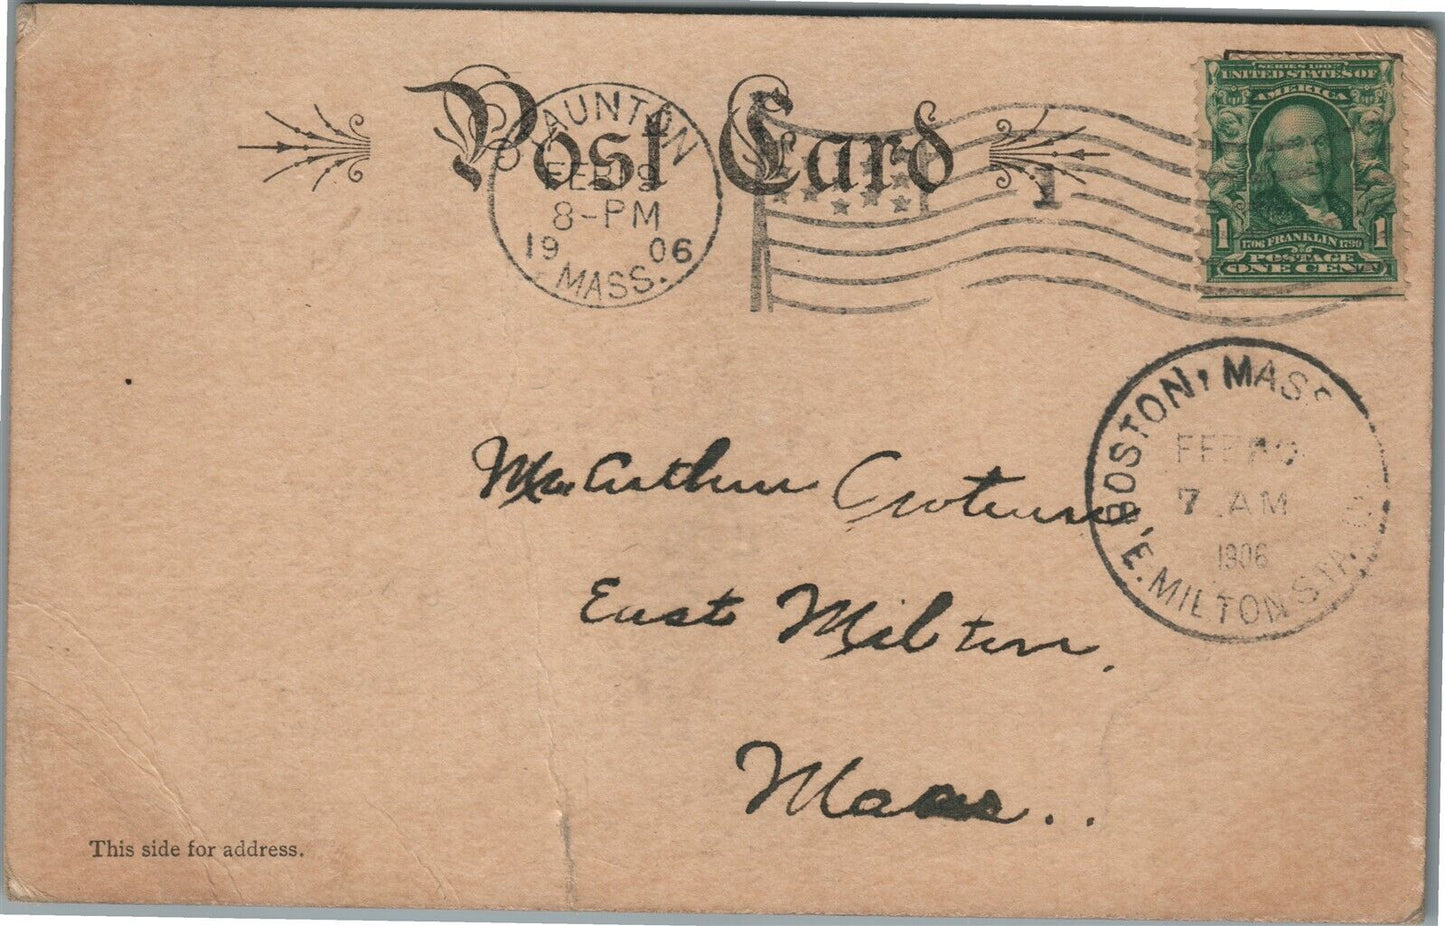 Post Card
TAUNTON
FEB 19
8-PM
19 06
MASS.
1
SERIES 1902
UNITED STATES OF
AMERICA
1 1706 FRANKLIN 1790 1
POSTAGE
ONE CENT
BOSTON, MASS.
FEB 20
7 AM
1906
E. MILTON STA.
Arthur
East Milton,
Mass..
This side for address.